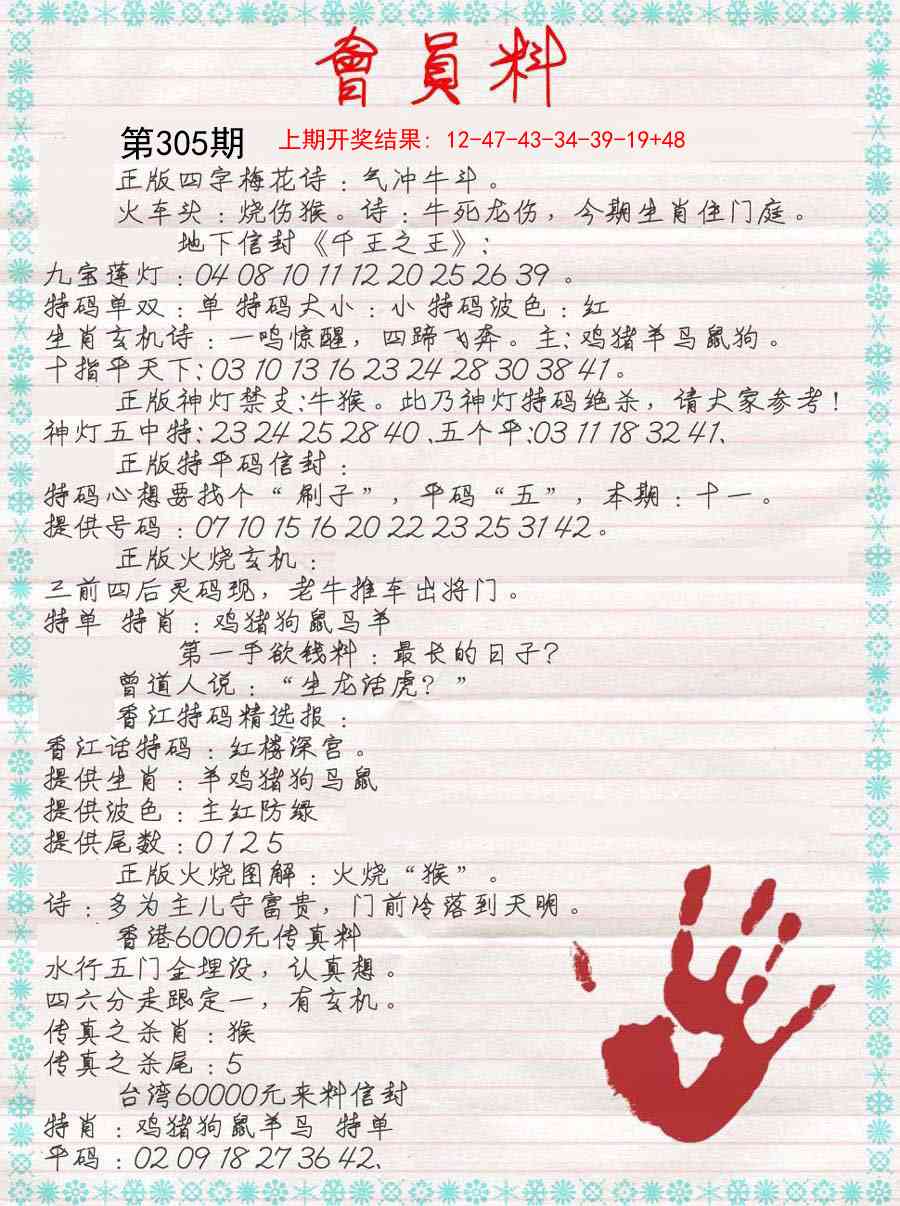 會員料
第305期 上期开奖结果: 12-47-43-34-39-19+48
正版四字梅花诗：气冲牛斗。
火车头：烧伤猴。诗：牛死龙伤，今期生肖住门庭。
地下信封《千王之王》：
九宝莲灯：04 08 10 11 12 20 25 26 39 。
特码单双：单 特码大小：小 特码波色：红
生肖玄机诗：一鸣惊醒，四蹄飞奔。主：鸡猪羊马鼠狗。
十指平天下：03 10 13 16 23 24 28 30 38 41 。
正版神灯禁支：牛猴。此乃神灯特码绝杀，请大家参考！
神灯五中特：23 24 25 28 40 、五个平：03 11 18 32 41、
正版特平码信封：
特码心想要找个“刷子”，平码“五”，本期：十一。
提供号码：07 10 15 16 20 22 23 25 31 42 。
正版火烧玄机：
三前四后灵码现，老牛推车出将门。
特单 特肖：鸡猪狗鼠马羊
第一手欲钱料：最长的日子？
曾道人说：“生龙活虎？”
香江特码精选报：
香江话特码：红楼深宫。
提供生肖：羊鸡猪狗马鼠
提供波色：主红防绿
提供尾数：0 1 2 5
正版火烧图解：火烧“猴”。
诗：多为主儿守富贵，门前冷落到天明。
香港6000元传真料
水行五门金埋设，认真想。
四六分走跟定一，有玄机。
传真之杀肖：猴
传真之杀尾：5
台湾60000元来料信封
特肖：鸡猪狗鼠羊马 特单
平码：02 09 18 27 36 42、